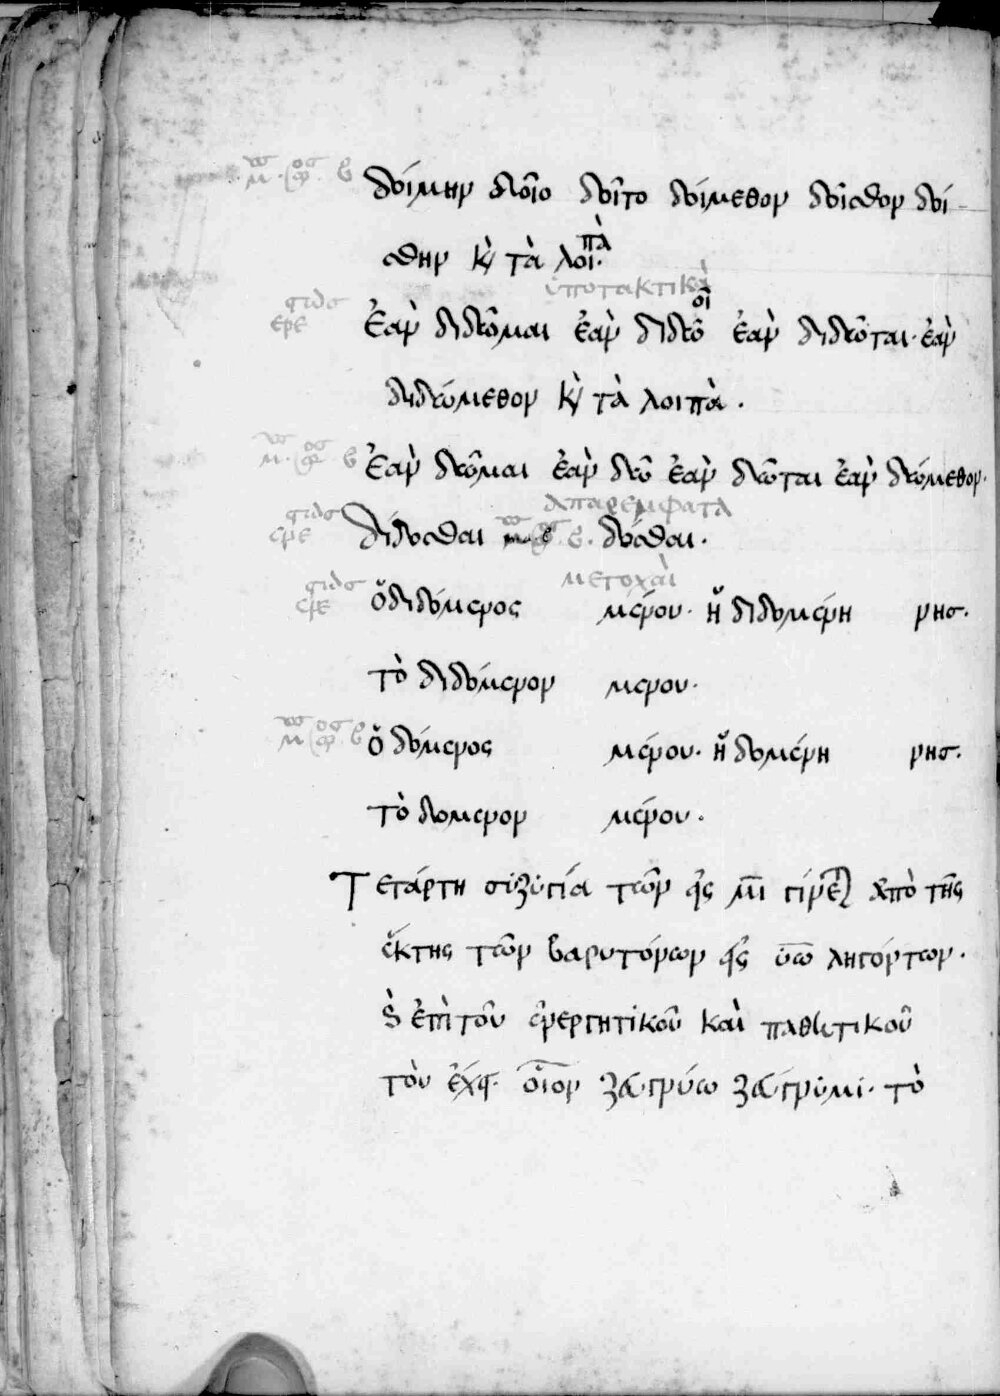 δοίμην δοῖο δοῖτο δοίμεθον δοῖσθον δοί-
σθην κ̀ τὰ λοιπὰ
ὑποτακτικὰ
ἐὰν διδῶμαι ἐὰν διδῶ ἐὰν διδῶται· ἐὰν
διδώμεθον κ̀ τὰ λοιπὰ.
ἐὰν δῶμαι ἐὰν δῶ ἐὰν δῶται ἐὰν δώμεθον.
ἀπαρέμφατα
δίδοσθαι β. δόσθαι.
μετοχαὶ
ὁ διδόμενος μένου. ἡ διδομένη νης.
τὸ διδόμενον μενου.
ὁ δόμενος μένου. ἡ δομένη νης.
τὸ δομενον μένου.
Τετάρτη συζυγία τῶν εἰς μι γίνεται ἀπὸ τῆς
ἕκτης τῶν βαρυτόνων εἰς ύω ληγόντων.
ἐπὶ τοῦ ἐνεργητικοῦ καὶ παθητικοῦ
οἷον ζευγνύω ζεύγνυμι. τὸ